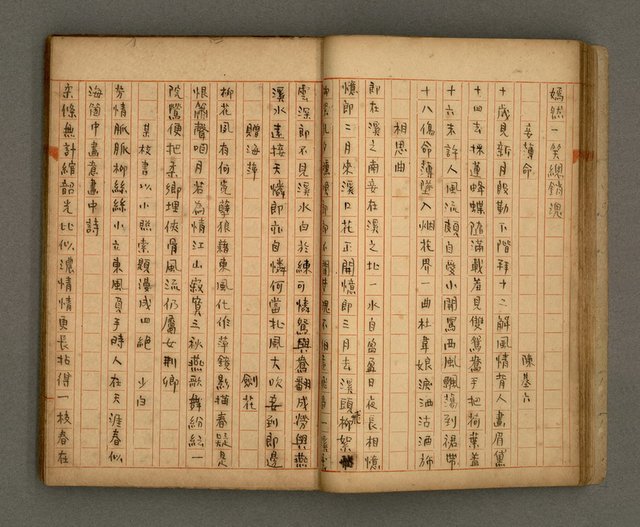 嫣然一笑總銷魂
妾薄命　陳基六
十歲見新月殷勤下階拜十二解風情背人畫眉黛
十四去採蓮蜂蝶陷滿載羞見雙鴛鴦手把荷葉蓋
十六未許人風流頗自愛小開罵西風飄蕩到裙帶
十八傷命薄墜入烟花界一曲杜韋娘淚洒沽酒旆
相思曲
郎在溪之南妾在溪之北一水自盈盈日夜長相憶
憶郎二月來溪口花正開憶郎三月去溪頭柳絮飛
雲深郎不見溪水白於練可憐鴛與鴦翻成勞與燕
溪水遠接天憐郎亦自憐何當北風大吹妾到郎邊
贈海萍　劍花
柳花風有何晃薛狼藉東風化作萍鏡影描春疑見
恨簫聲咽月若為情江山寂寞三秋燕歌舞紛紜一
院鶯便把柔鄉埋俠骨風流仍屬女荊卿
某校書以小照索題漫成四絕　少白
芳情脈脈柳絲絲小立東風負手時人在天涯春似
海箇中畫意畫中詩
柔條無計綰韶光比似濃情情更長拈得一枝春在